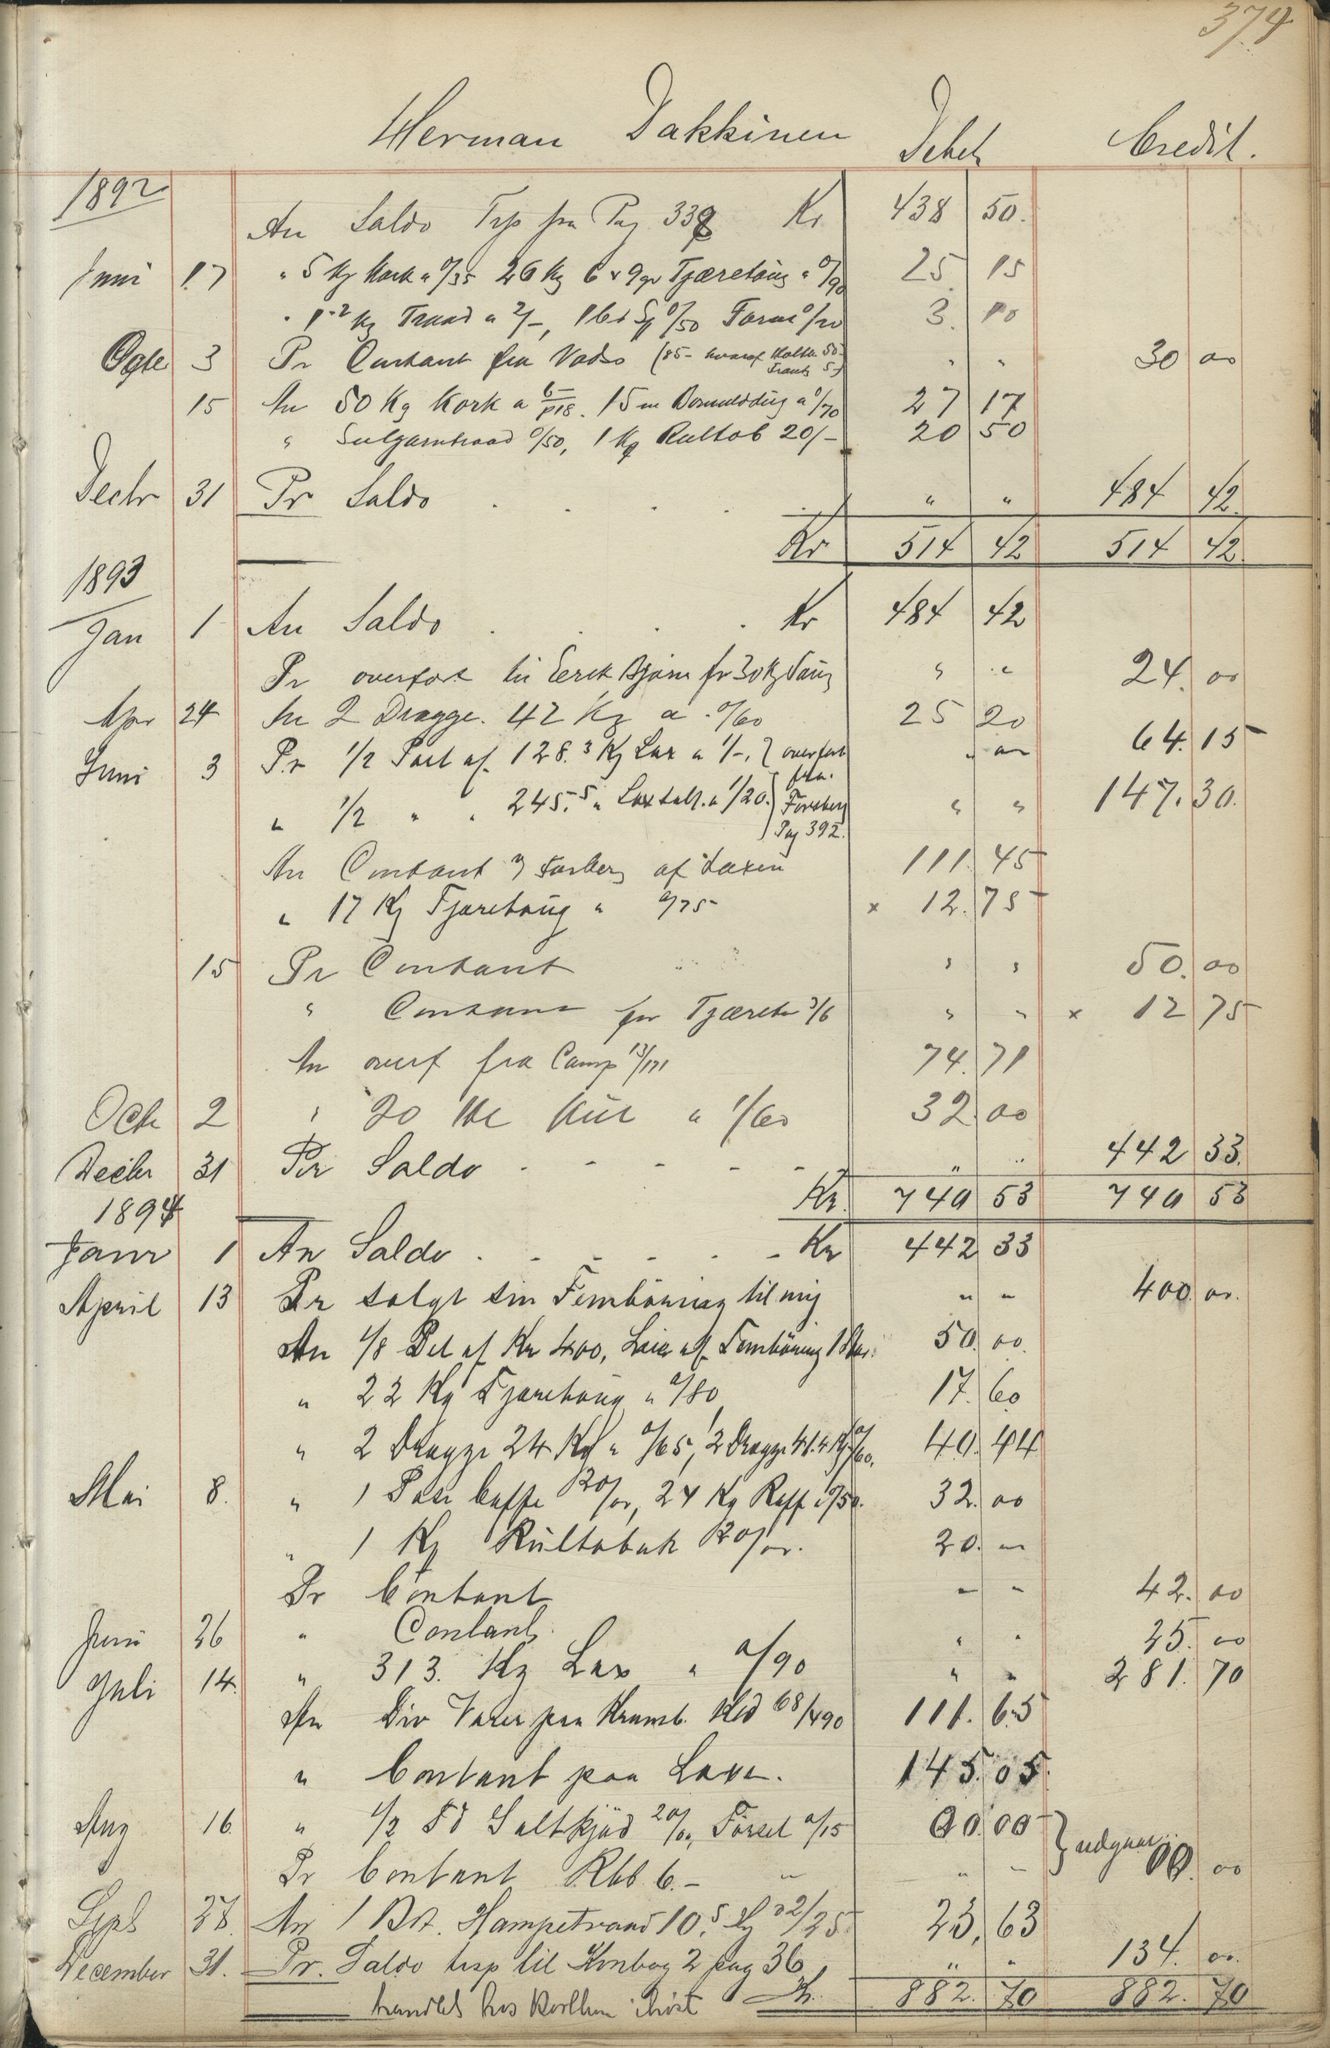 374
Herman Dakkinen Debet Credit.
1892
An Saldo Trp fra Pag 338 Kr 438 50.
Juni 17 " 5 Kg Kork a 0/35 26 Kg 6 & 9gr Tjæretoug a 0/90 25 15
" 1.2 Kg Traad a 2/-, 0/50 0/20 3. 10
Octr 3 Pr Contant fra Vadsø (85- hvoraf 50- Frants 5-) " " 30 00
15 An 50 Kg Kork a 15 m a 0/70 27 17
" 0/50, 1 Kg Rultob 20/- 20 50
Decbr 31 Pr Saldo . . . . . " " 484 42.
Kr 514 42 514 42.
1893
Jan 1 An Saldo . . . . Kr 484 42
Pr overført til Erik Bjørn for 30 Kg Toug " " 24. 00
Apr 24 An 2 Dragge. 42 Kg a 0/60 25 20
Juni 3 Pr 1/2 Part af 128.3 Kg Lax a 1/-. } overført " " 64. 15
fra
" 1/2 " " 245.5 " Lax a 1/20. } Forsberg " " 147. 30.
Pag 392.
An Contant Forsberg af Laxen 111. 45
" 17 Kg Tjæretoug " 0/75 x 12. 75
15 Pr Contant " " 50. 00
" Contant for Tjæreto 3/6 " " x 12 75
An overf fra Camp 13/171 74. 71
Octr 2 " 20 a 1/60 32. 00
Decbr 31 Pr Saldo - - - - - " " 442 33.
Kr. 740 53 740 53
1894
Janr 1 An Saldo . - - - - - Kr 442 33
April 13 Pr solgt sin Fembøring til mig " " 400. 00.
An 1/8 Del af Kr 400, Leie af Fembøring 50. 00.
" 22 Kg Tjæretoug " 0/80 17. 60
" 2 Dragge 24 Kg a 0/65, 2 Dragge 41.4 Kg 0/60. 40. 44
Mai 8. " 1 Pose Caffe 20/00, 24 Kg Raff a 0/50. 32. 00
" 1 Kg Rultobak 20/00. 20. "
Pr Contant " " 42. 00
Juni 26 " Contant. " " 25. 00
Juli 14. " 313. Kg Lax a 0/90 " " 281. 70
An Div Varer paa Kramb. Kld 68/490 111. 65
" Contant paa Laxen. 145. 05.
Aug 16. " 1/2 Td Saltkjød 20/00, Førsel 0/15 00. 00 } udgaar
Pr Contant Rbb 6.- " " " 00. 00
Septr 27. An 1 Bdt. Hampetraad 10.5 Kg 2/25 23, 63
December 31. Pr. Saldo trsp til Konbog 2 pag 36 " " 134. 00.
handlet hos i høst Kr. 882. 70 882. 70